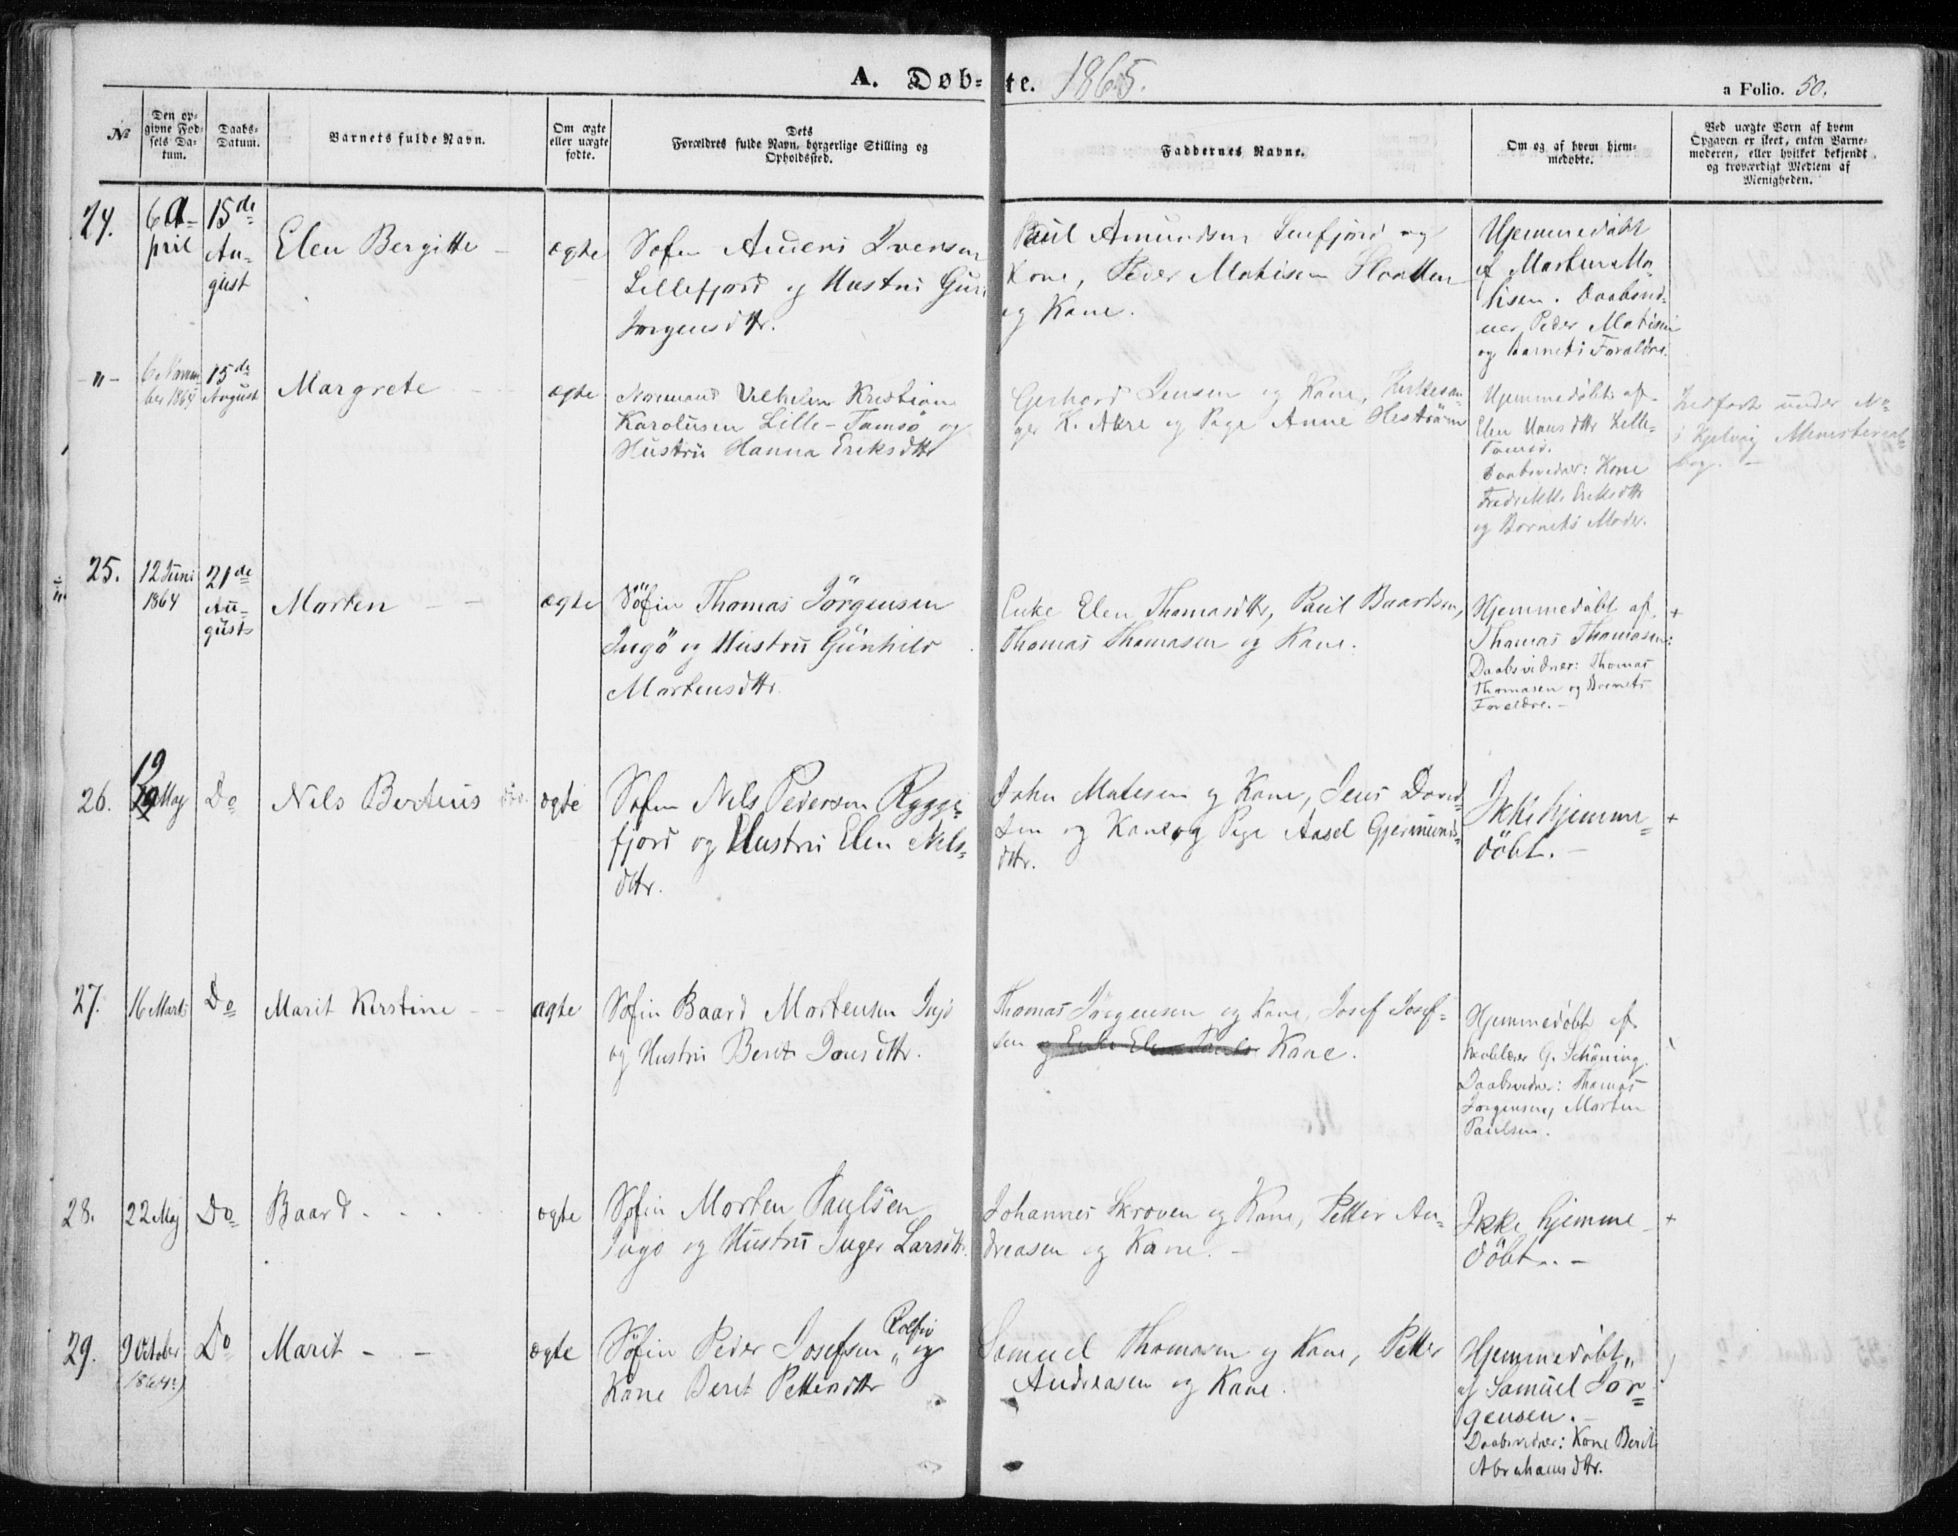 A. Døb- te. 1865.
a Folio. 50.
No
Den op-
givne Fød-
sels Da-
tum.
Daabs-
Datum.
Barnets fulde Navn.
Om ægte
eller uægte
fødte.
Dets
Forældres fulde Navn, borgerlige Stilling og
Opholdssted.
Faddernes Navne.
Om og af hvem hjem-
medøbte.
Ved uægte Børn af hvem
Opgaven er skeet, enten Barne-
moderen, eller hvilket bekjendt
og troværdigt Medlem af
Menigheden.
24.
6 A-
pril
15de
Au-
gust
Elen Bergitte
ægte
Søfin Anders Iversen
Lillefjord og Hustru Guri
Jørgensdttr.
Paul Amundsen og
Kone, Peder Matisen
og Kone.
Hjemmedøbt
af Morten Ma-
tisen. Daabsvid-
ner, Peder Matisen
og Barnets Forældre.
-"-
6 Novem-
ber 1864
15de
August
Margrete
ægte
Normand Vilhelm Kristian
Karolusen Lille-Tamsø og
Hustru Hanna Eriksdttr
Gerhard Jensen og Kone, Kirkesan-
ger K. Akre og Pige Anne
Hjemmedøbt af
Elen Hansdttr Lille-
Tamsø.
Daabsvidner: Kone
Fredrikke Eriksdttr
og Barnets Moder.
Indført under No
i Kjelvig Ministerial-
bog. -
25.
12 Juni
1864
21de
Au-
gust
Morten
ægte
Søfin Thomas Jörgensen
Ingö og Hustru Günhild
Mortensdttr.
Enke Elen Thomasdttr, Paul Baardsen,
Thomas Thomasen og Kone.
Hjemmedøbt af
Thomas Thomasen:
Daabsvidner: Thomas
Thomasen og Barnets
Forældre. -
+
26.
19
19 Maj
Do
Nils Berteus
ægte
Søfin Nils Pedersen Rygge-
fjord og Hustru Elen Nils-
dttr.
John Matisen og Kone, Jens David-
sen og Kone og Pige Aasel Gjermunds-
dttr.
Ikke hjemme-
döbt. -
+
27.
16 Marts
Do
Marit Kirstine
ægte
Søfin Baard Mortensen Ingö
og Hustru Beret Jonsdttr.
Thomas Jörgensen og Kone, Josef Josef-
sen og Enke Elen Kone.
Hjemmedøbt af
Skolelærer G. Schöning.
Daabsvidner: Thomas
Jørgensen, Morten
Paulsen.
28.
22 Maj
Do
Baard
ægte
Søfin Morten Paulsen
Ingö og Hustru Inger Larsdttr.
Johannes Skroven og Kone, Petter An-
dreasen og Kone. -
Ikke hjemme
döbt. -
+
29.
9 October
(1864)
Do
Marit
ægte
Søfin Peder Josefsen Rolfsø og
Kone Beret Pettersdttr
Samuel Thomasen og Kone, Petter
Andreasen og Kone.
Hjemmedøbt
af Samuel Jør-
gensen.
Daabsvidner: Kone Berit
Abrahamsdttr.